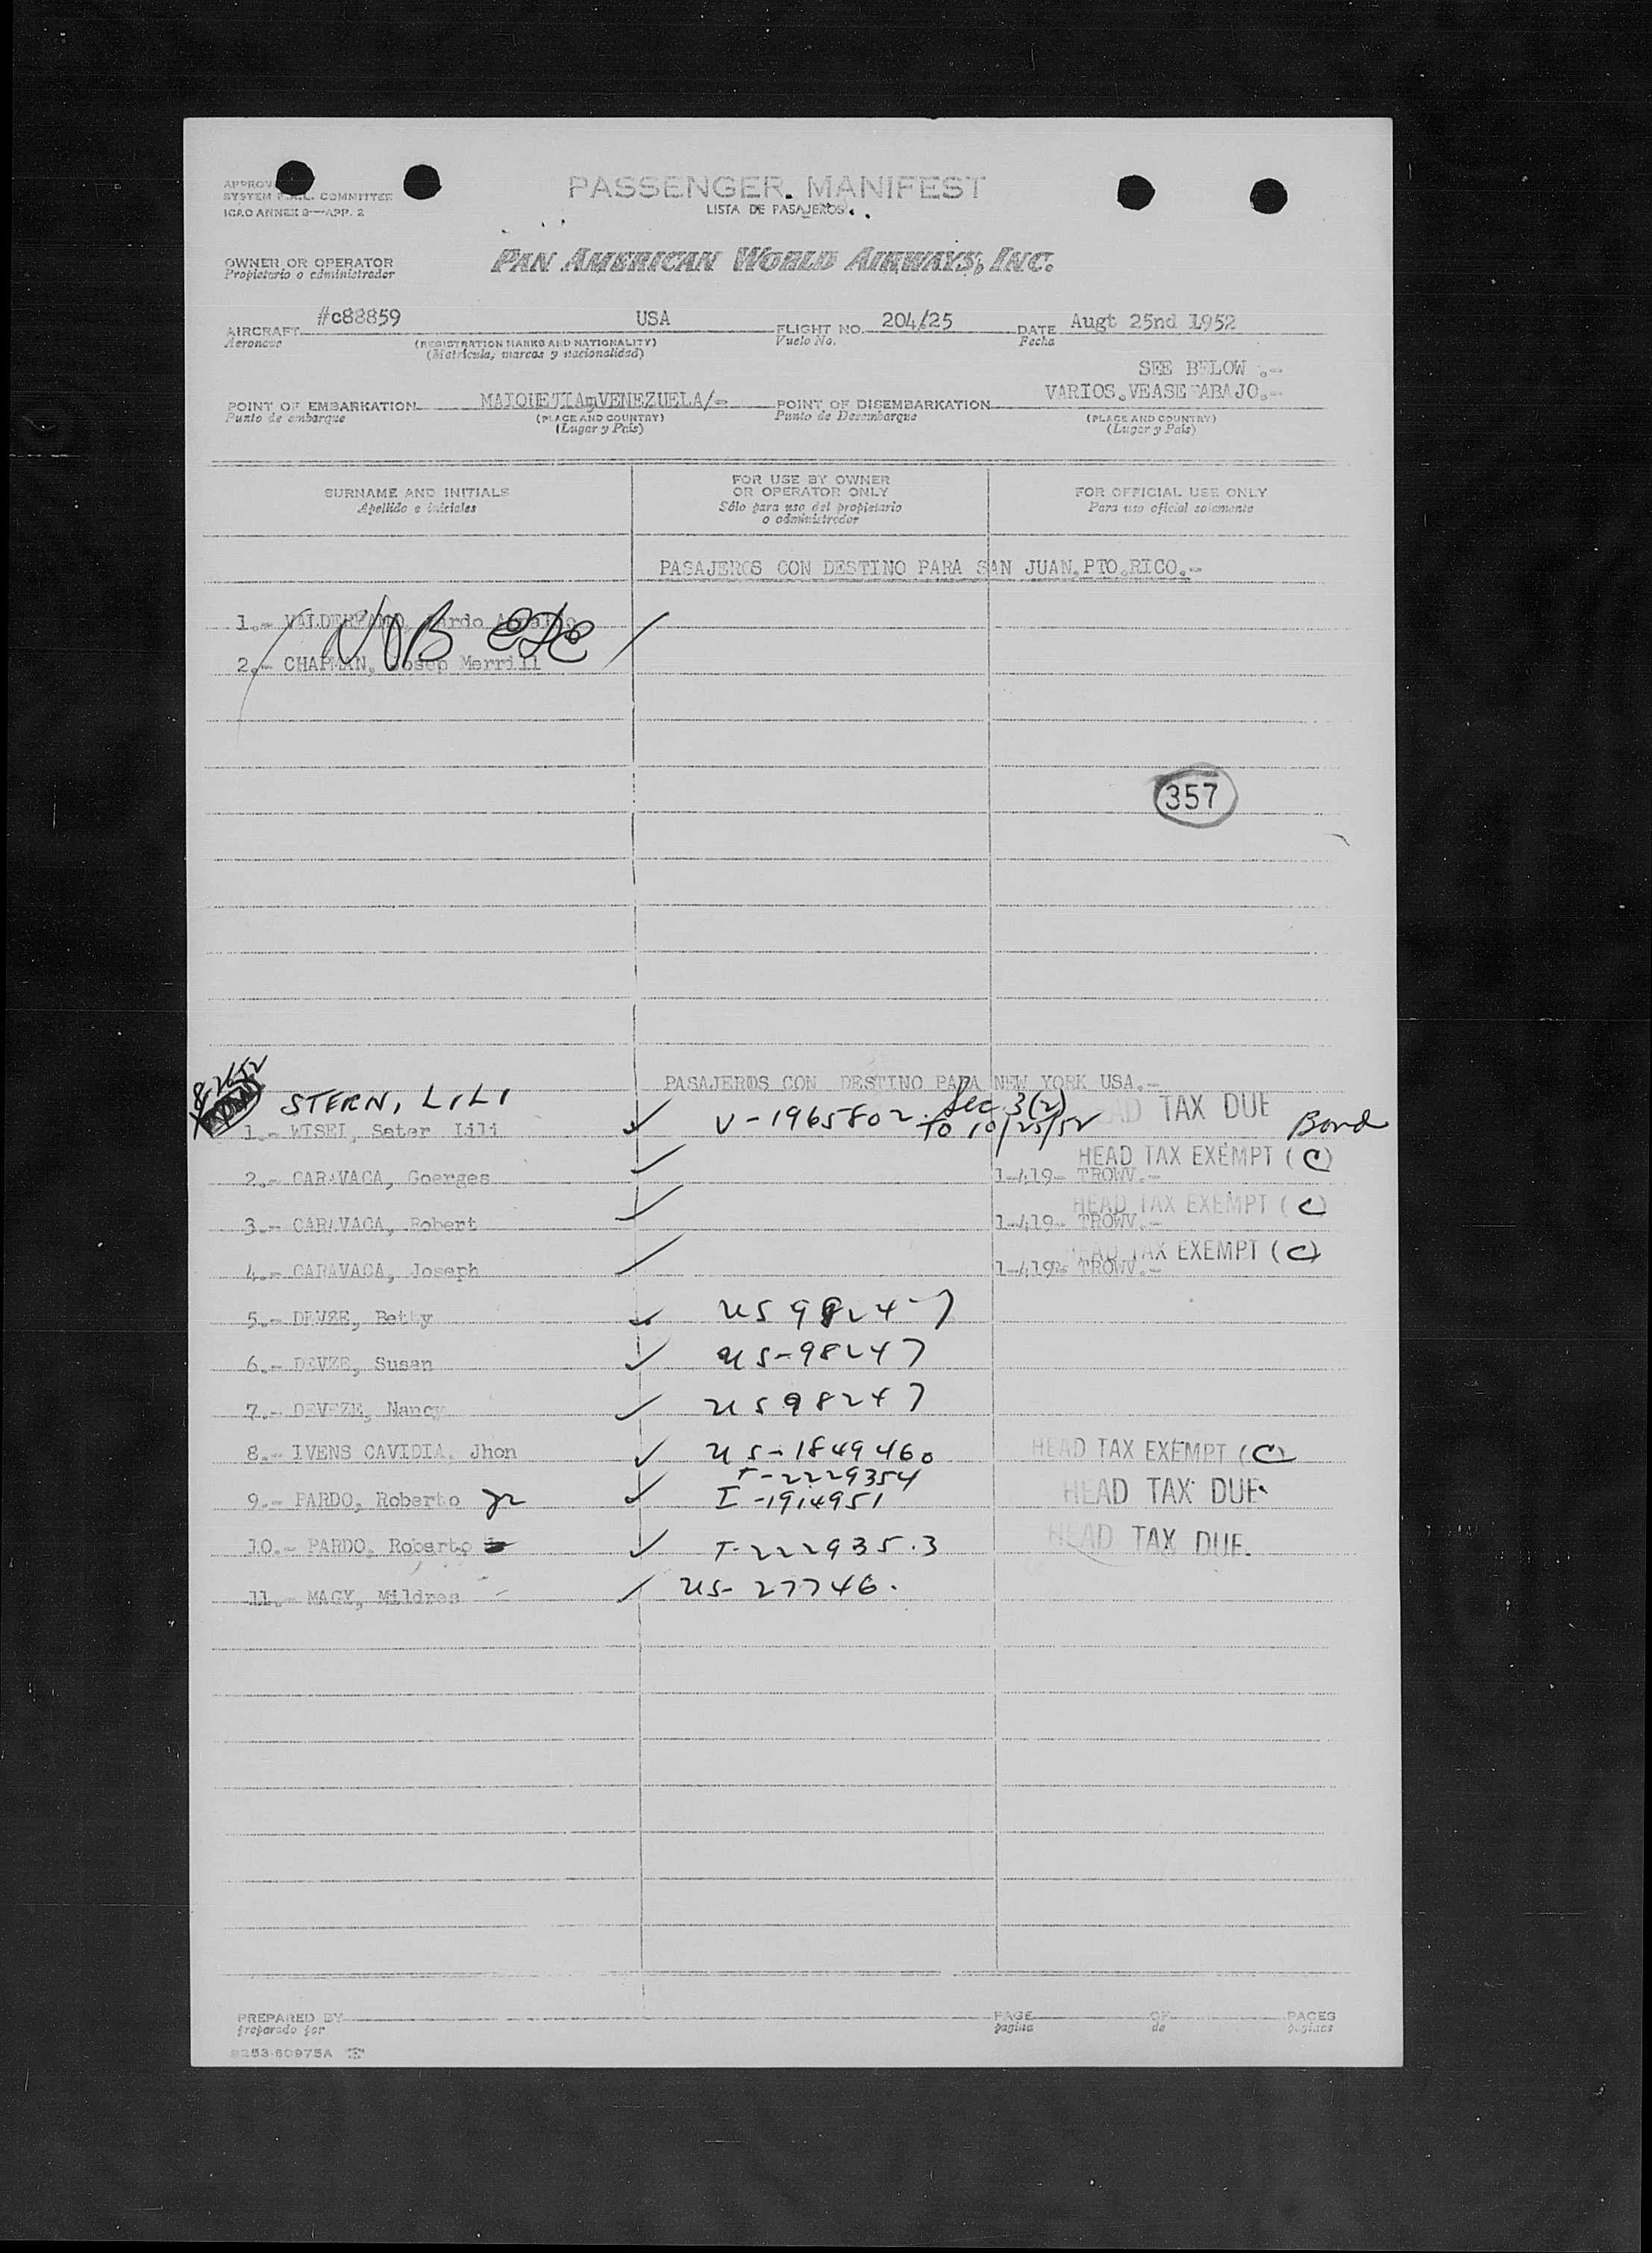 PASSENGER MANIFEST
LISTA DE PASAJEROS
SYSTEM COMMITTEE
ICAO ANNEX 9—APP. 2
OWNER OR OPERATOR
Propietario o administrador
PAN AMERICAN WORLD AIRWAYS, INC.
AIRCRAFT #c88859 USA FLIGHT NO. 204/25 DATE Augt 25nd 1952
Aeronave (REGISTRATION MARKS AND NATIONALITY) Vuelo No. Fecha
(Matrícula, marcas y nacionalidad)
SEE BELOW .-
POINT OF EMBARKATION MAIQUETIA, VENEZUELA/- POINT OF DISEMBARKATION VARIOS.VEASE ABAJO.-
Punto de embarque (PLACE AND COUNTRY) Punto de Desembarque (PLACE AND COUNTRY)
(Lugar y País) (Lugar y País)
SURNAME AND INITIALS FOR USE BY OWNER OR OPERATOR ONLY FOR OFFICIAL USE ONLY
Apellido e iniciales Sólo para uso del propietario o administrador Para uso oficial solamente
PASAJEROS CON DESTINO PARA SAN JUAN,PTO.RICO.-
1.- Pardo
NOB
2.- CHAPMAN, Josep Merrill
357
PASAJEROS CON DESTINO PARA NEW YORK USA.-
STERN, LILI
1.- WISEL, Sater Lili V-1965802. Sec 3(2) to 10/25/52 HEAD TAX DUE Bond
2.- CARAVACA, Goerges 1-419- TROWV.- HEAD TAX EXEMPT (C)
3.- CARAVACA, Robert 1-419- TROWV.- HEAD TAX EXEMPT (C)
4.- CARAVACA, Joseph 1-419- TROWV.- HEAD TAX EXEMPT (C)
5.- DEVZE, Betty US 98247
6.- DEVZE, Susan US-98247
7.- DEVEZE, Nancy US 98247
8.- IVENS CAVIDIA, Jhon US-1849460 HEAD TAX EXEMPT (C)
9.- PARDO, Roberto Jr T-2229354 I-1914951 HEAD TAX DUE
10.- PARDO, Roberto T-222935.3 HEAD TAX DUE.
11.- MACY, Mildres US-27746.
PREPARED BY PAGE OF PAGES
preparado por pagina de paginas
8253-60975A